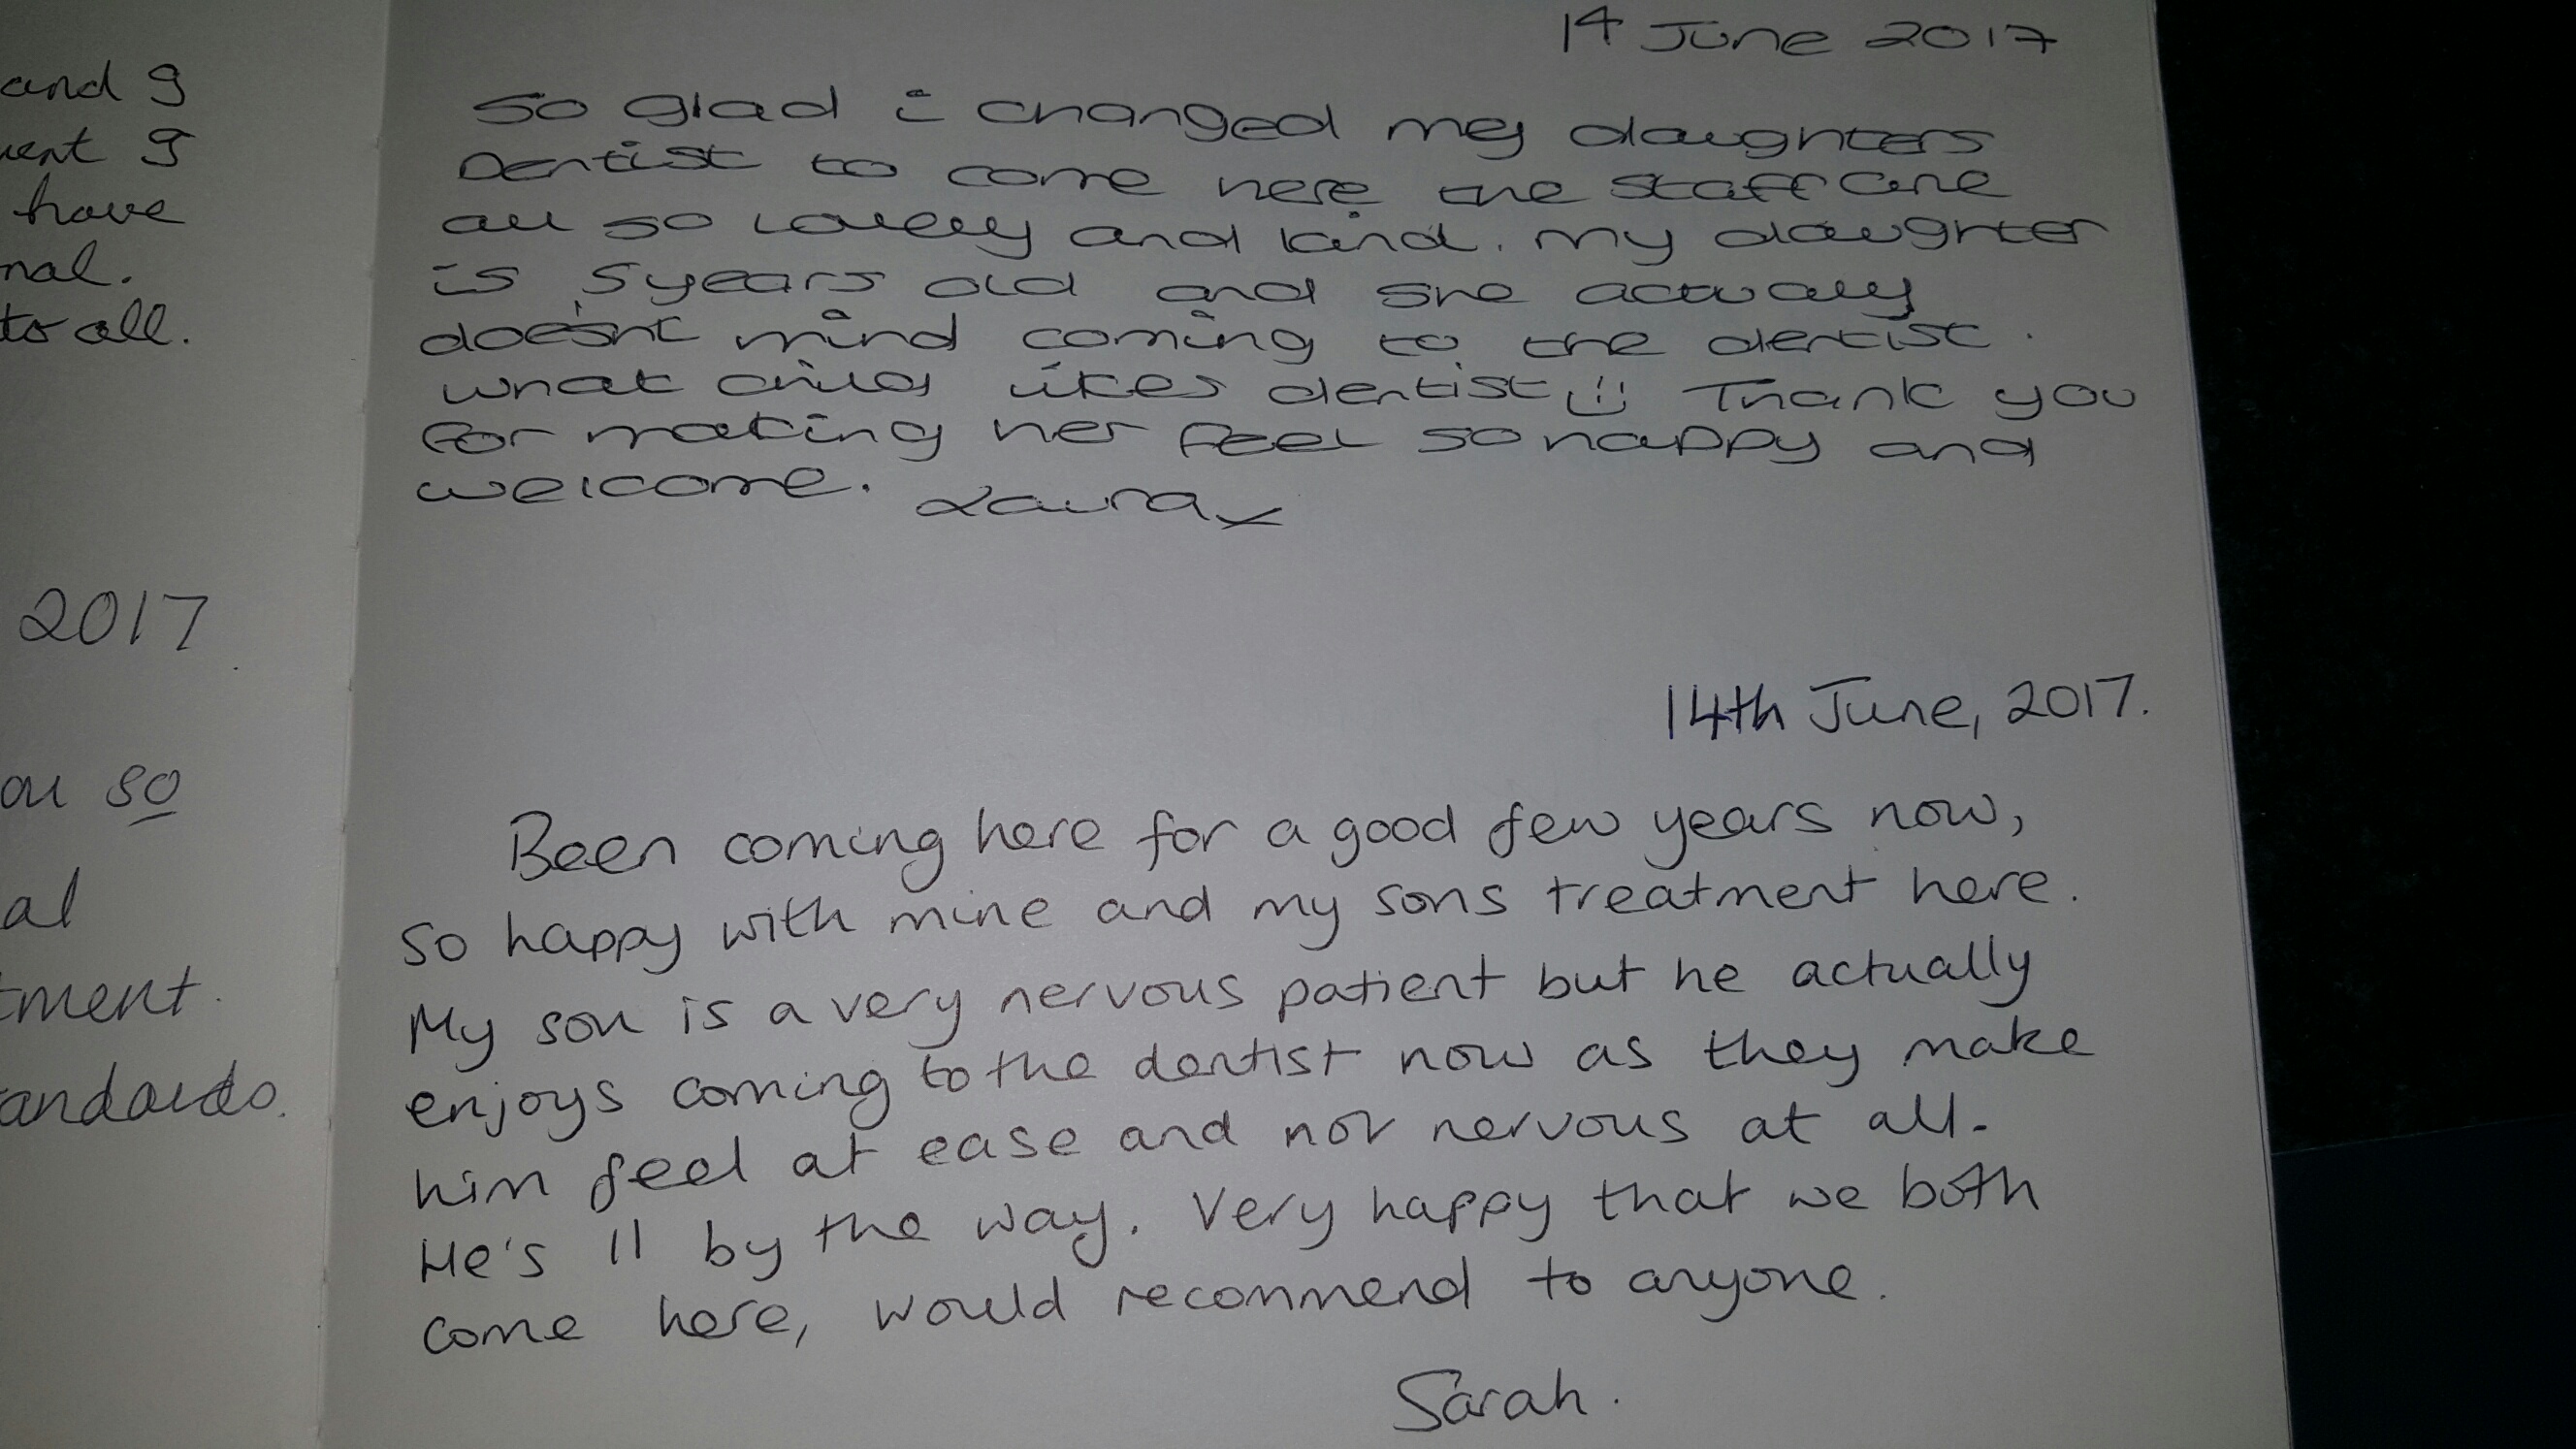 and I
ment I
have
nal.
to all.
2017
ou so
al
tment.
andards.
14 June 2017
So glad i changed my daughters
Dentist to come here the staff are
all so lovely and kind. My daughter
is 5 years old and she actually
doesn't mind coming to the dentist.
what child likes dentist Thank you
for making her feel so happy and
welcome. Laura x
14th June, 2017.
Been coming here for a good few years now,
so happy with mine and my sons treatment here.
My son is a very nervous patient but he actually
enjoys coming to the dentist now as they make
him feel at ease and not nervous at all.
He's 11 by the way. Very happy that we both
come here, would recommend to anyone.
Sarah.